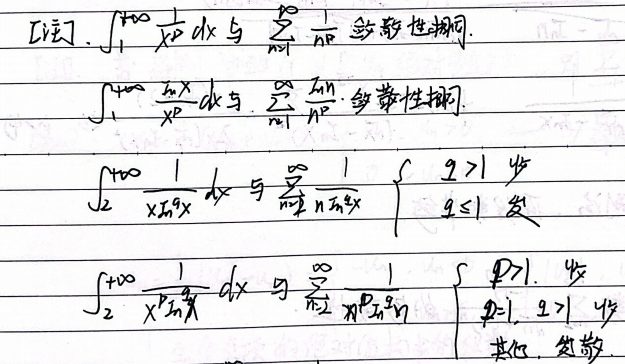 [注]. ∫₁^{+∞} 1/x^p dx 与 ∑_{n=1}^{∞} 1/n^p 敛散性相同.
∫₁^{+∞} lnx/x^p dx 与. ∑_{n=1}^{∞} lnn/n^p. 敛散性相同.
∫₂^{+∞} 1/(x ln^q x) dx 与 ∑_{n=2}^{∞} 1/(n ln^q x) { q>1 收
q≤1 发
∫₂^{+∞} 1/(x^p ln^q x) dx 与 ∑_{n=2}^{∞} 1/(n^p ln^q n) { p>1. 收
p=1, q>1 收
其他. 发散.